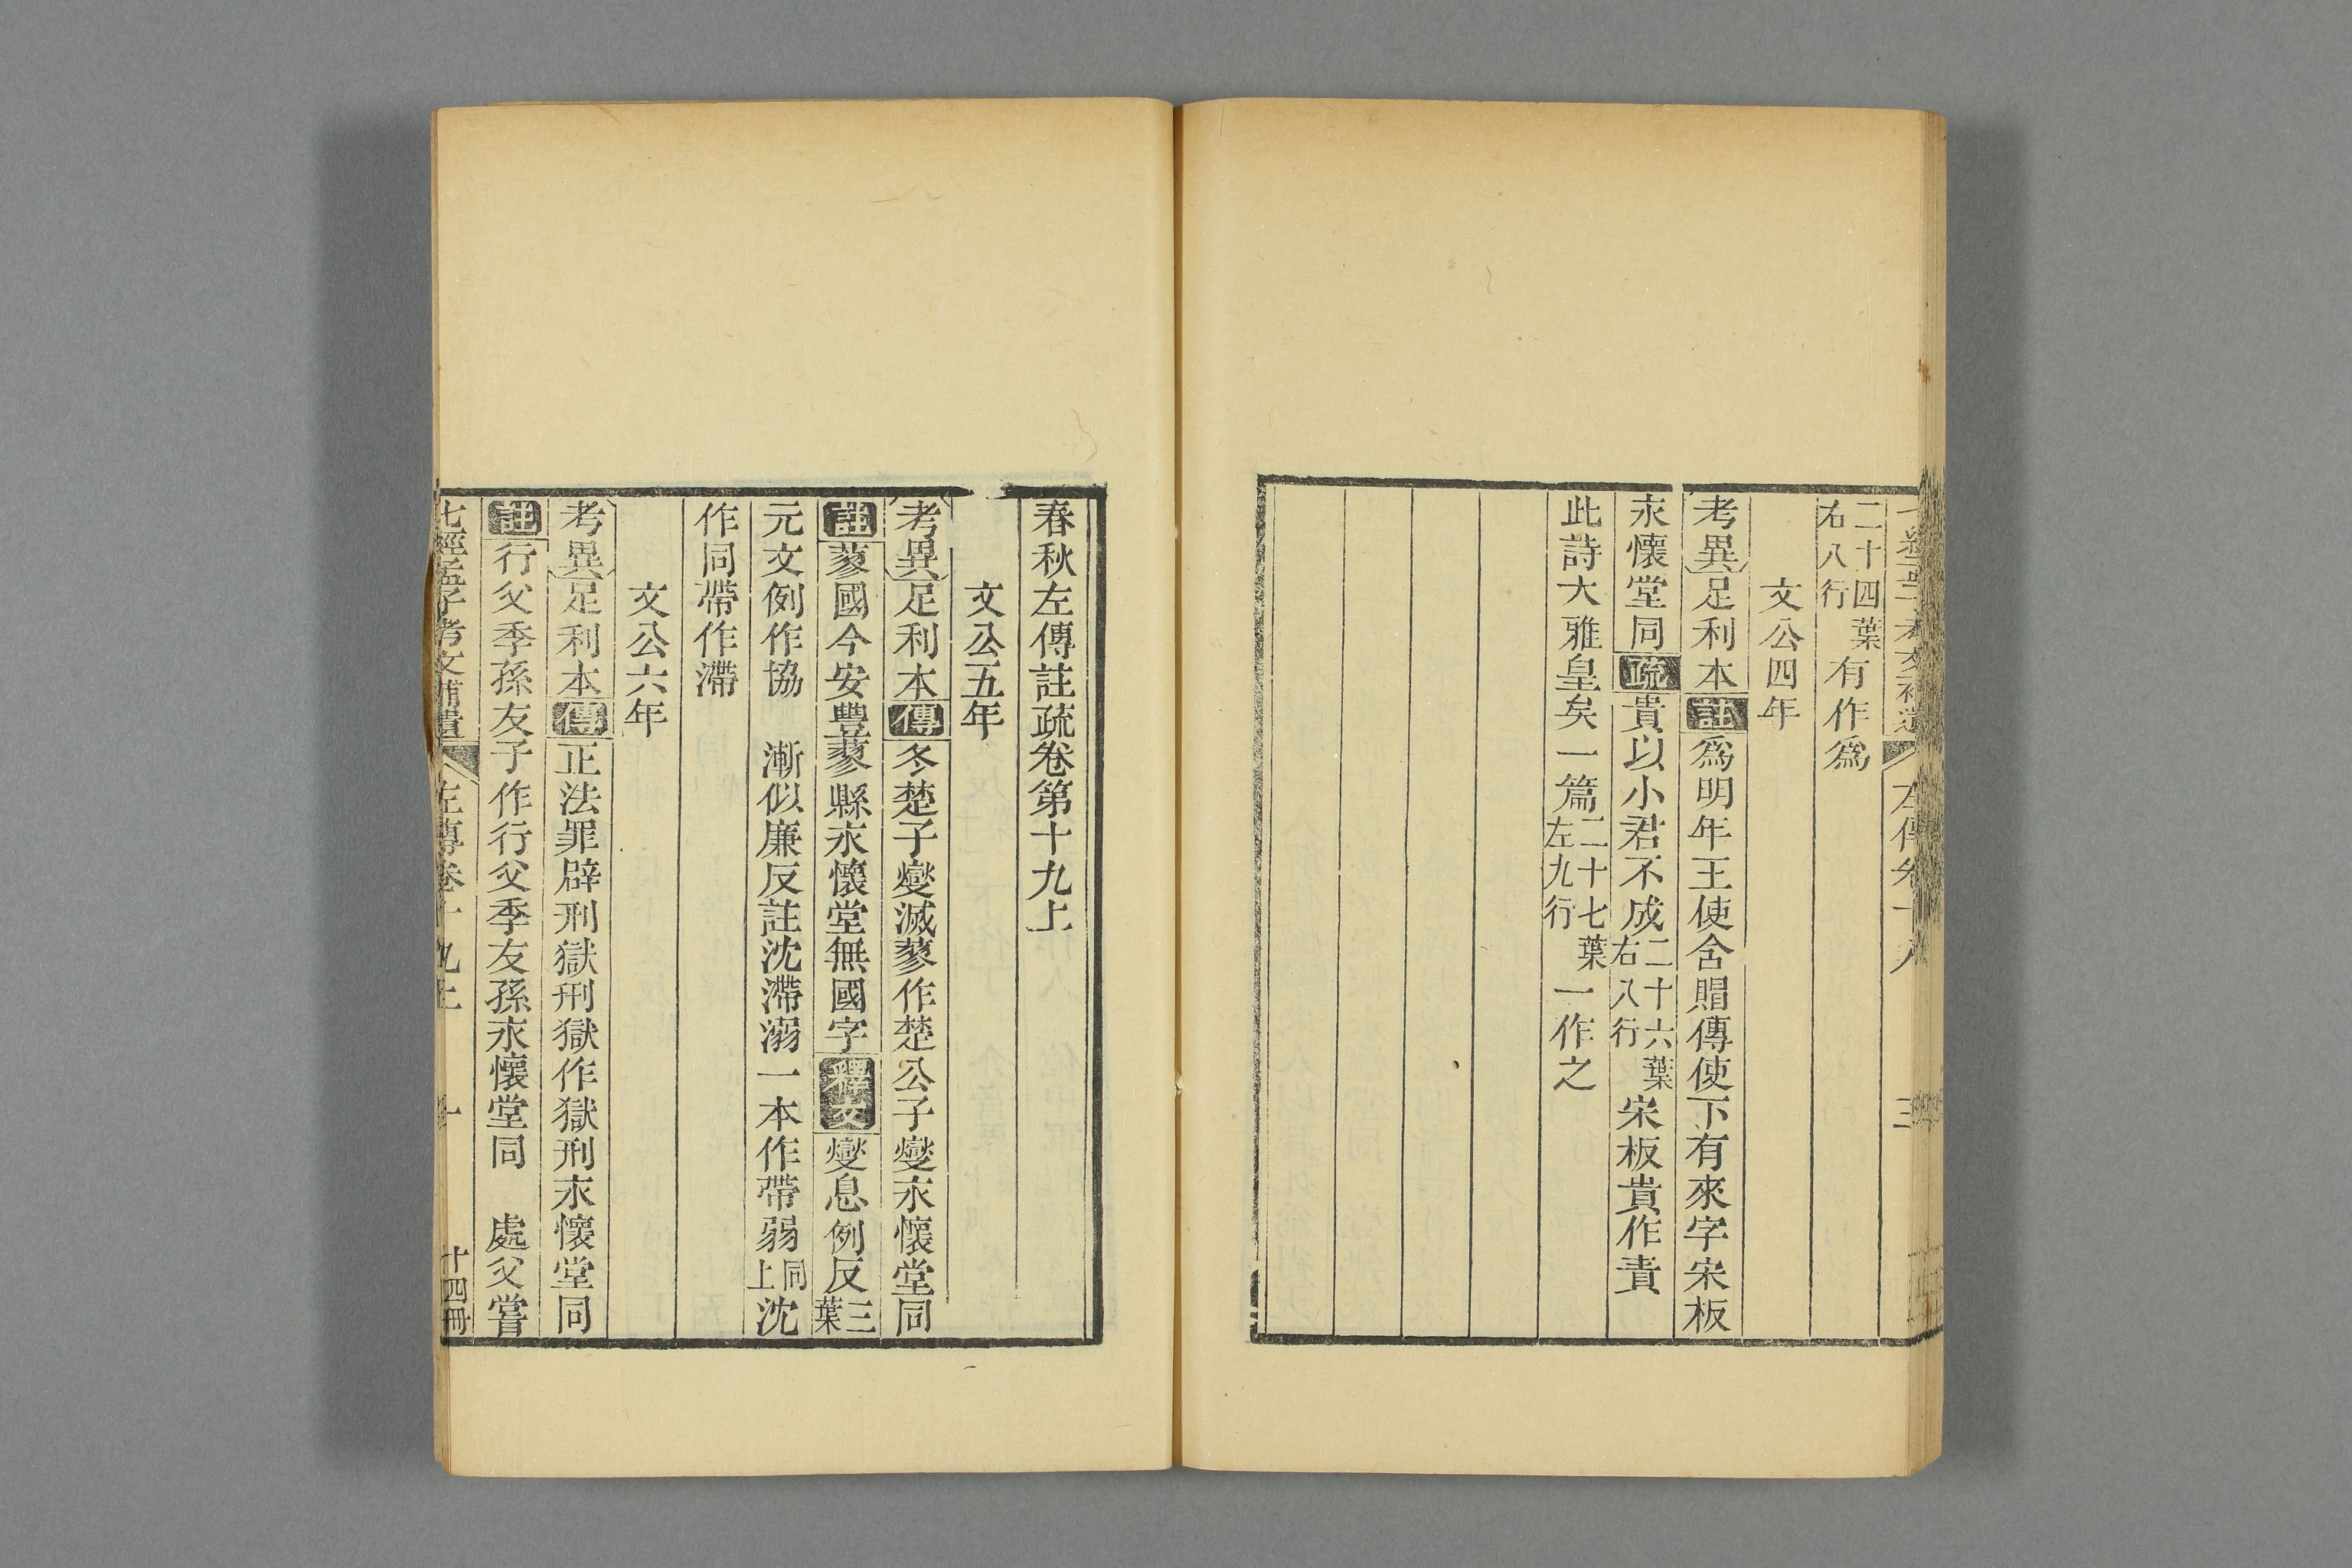 二十四葉右八行有作爲
文公四年
考異足利本註爲明年王使含賵傳使下有來字宋板
永懷堂同疏貴以小君不成二十六葉右八行宋板貴作責
此詩大雅皇矣一篇二十七葉左九行一作之
春秋左傳註疏卷第十九上
文公五年
考異足利本傳冬楚子燮滅蓼作楚公子燮永懷堂同
註蓼國今安豐蓼縣永懷堂無國字釋文燮息例反三葉
元文例作協　漸似廉反註沈滯溺一本作帶弱同上沈
作同帶作滯
文公六年
考異足利本傳正法罪辟刑獄刑獄作獄刑永懷堂同
註行父季孫友子作行父季友孫永懷堂同　處父嘗
七經孟子考文補遺　左傳卷十九上　一　十四冊